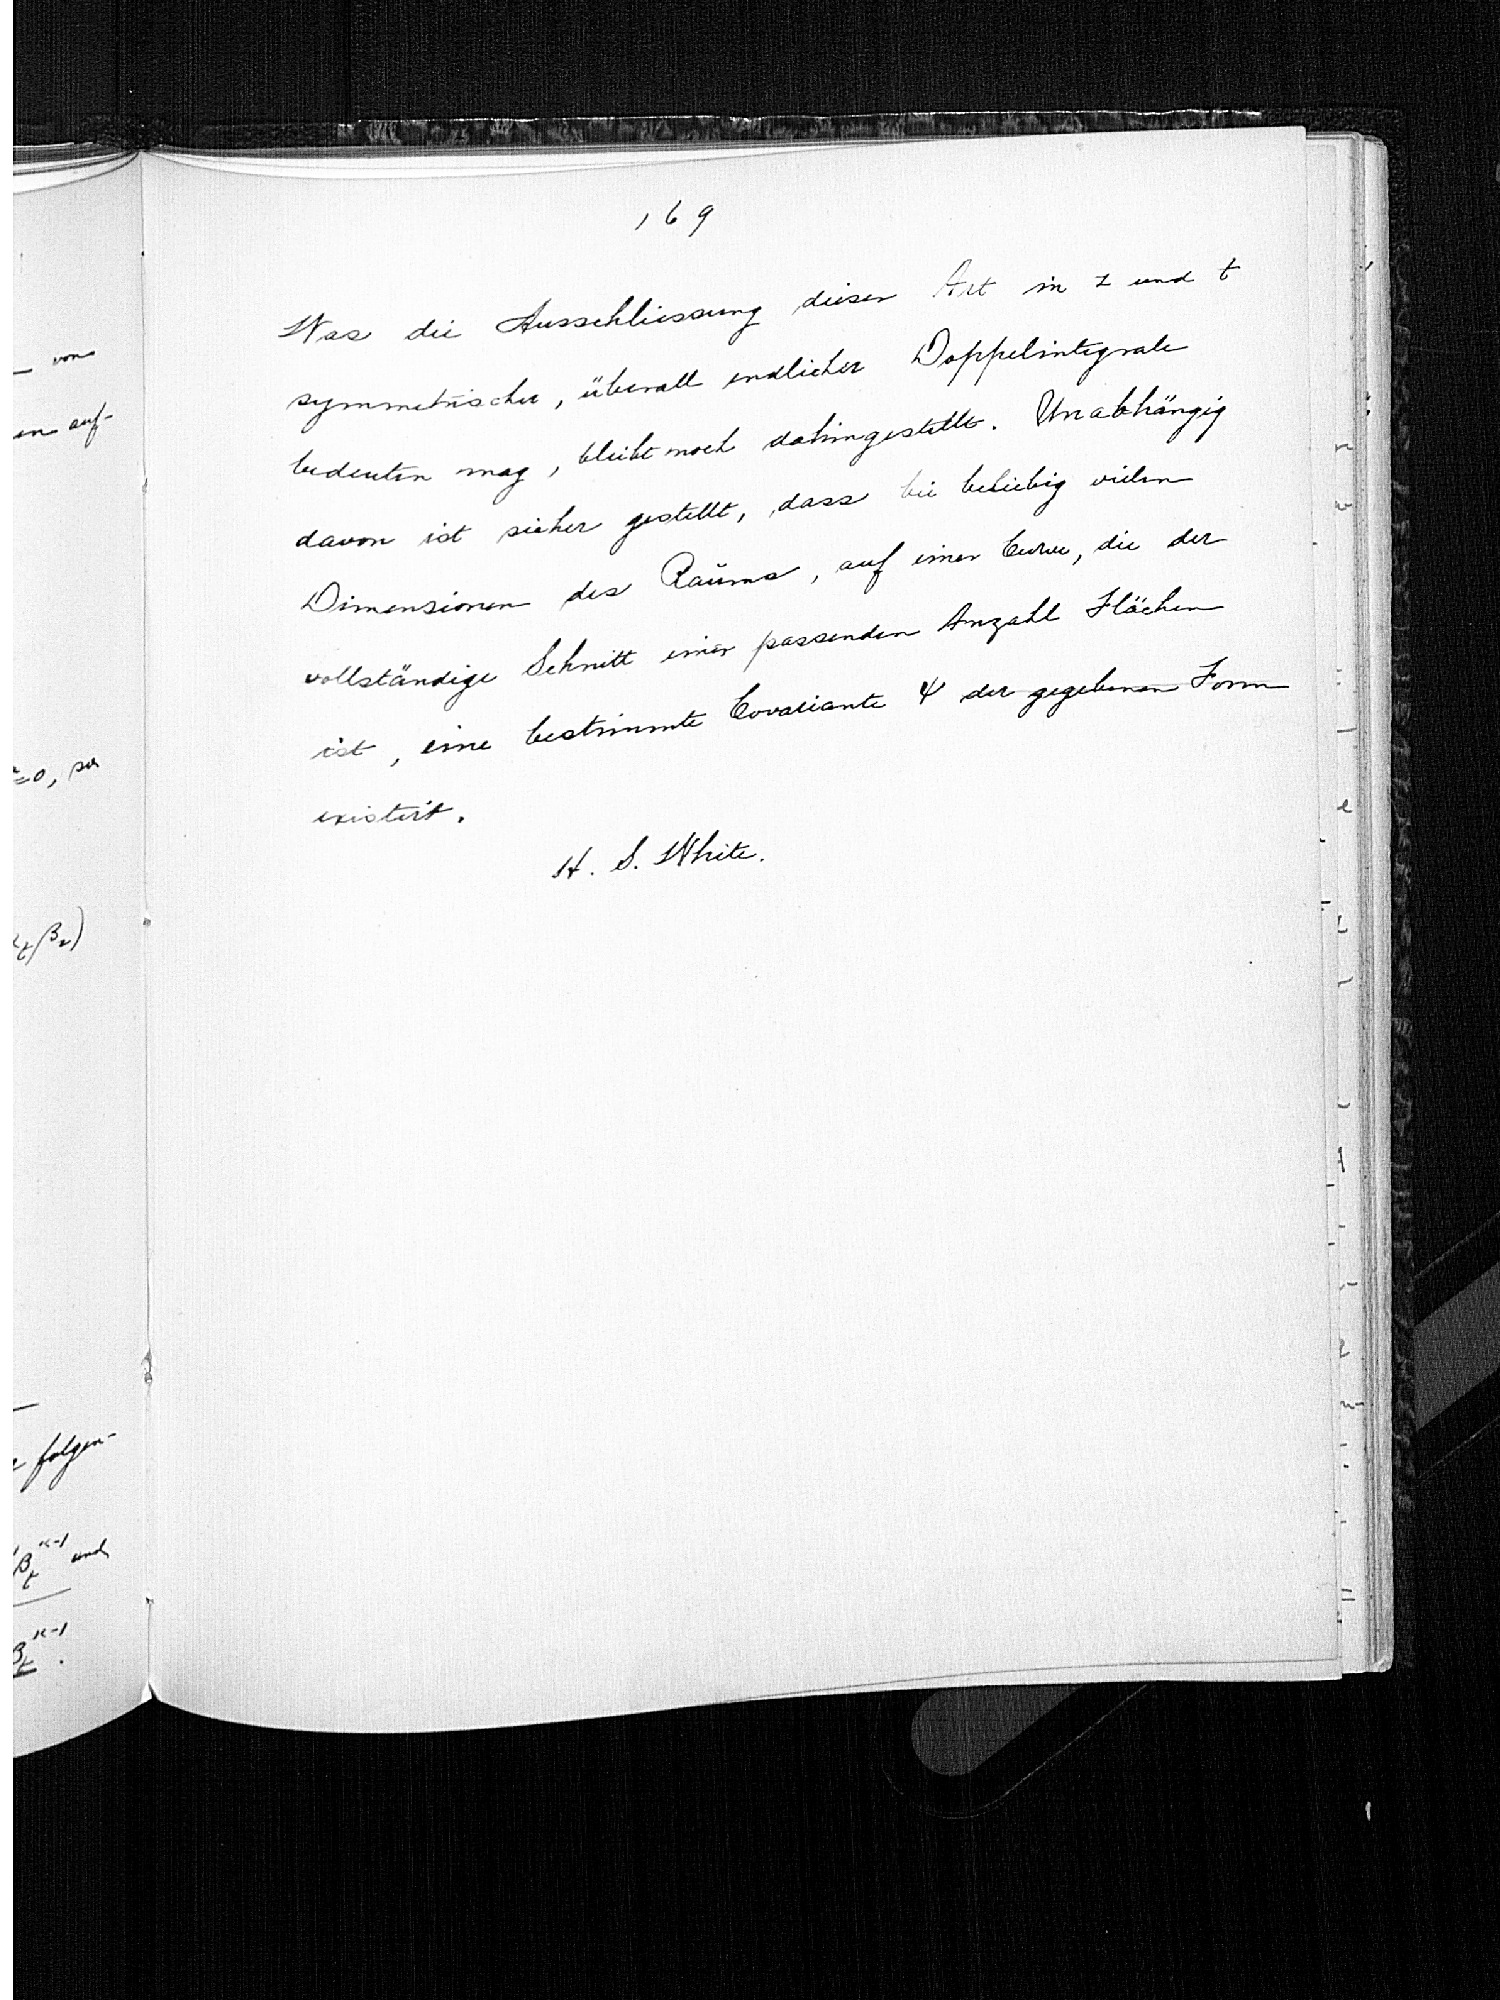 169
Was die Ausschliessung dieser Art in z und t
symmetrischer, überall endlicher Doppelintegrale
bedeuten mag, bleibt noch dahingestellt. Unabhängig
davon ist sicher gestellt, dass bei beliebig vielen
Dimensionen des Raums, auf einer Curve, die der
vollständige Schnitt einer passenden Anzahl Flächen
ist, eine bestimmte Covariante Ψ der gegebenen Form
existirt.
H. S. White.
von
en auf-
=0, so
β_z)
folgen-
β_t^{κ-1} und
β_t^{κ-1}.